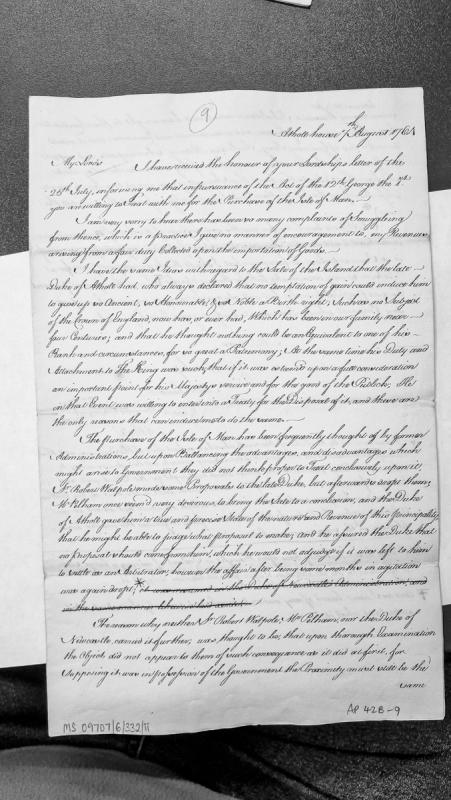 9
Atholl house 7th August 1764
My Lords
I have received the honour of your Lordships letter of the
25th July, informing me that in pursuance of the Act of the 12th George the 1st
you are willing to treat with me for the Purchase of the Isle of Man.
I am very sorry to hear there has been so many complaints of Smuggling
from thence, which is a practice I give no manner of encouragement to, my Revenue
arising from a fair duty Collected upon the importation of Goods.
I have the same Ideas with regard to the Sale of the Island, that the late
Duke of Atholl had, who always declared that no temptation of gain could induce him
to give up so Ancient, so Honourable & so Noble a Birthright, Such as no Subject
of the Crown of England, now has, or ever had, Which has been in our family near
four Centurys; and that he thought nothing could be an Equivalent to one of his
Rank and circumstances, for so great a Patrimony; At the same time his Duty and
Attachment to The King were such, that if it was esteem'd upon a full consideration
an important point for his Majestys service and for the good of the Publick, He
on that Event was willing to enter into a Treaty for the Disposal of it, and these are
the only reasons that can induce me to do the same.
The Purchase of the Isle of Man has been frequently thought of by former
Administrations, but upon Ballancing the advantages, and disadvantages which
might arise to Government they did not think proper to Treat conclusively upon it,
Sr. Robert Walpole made some Proposals to the late Duke, but afterwards dropt them;
Mr Pelham once seem'd very desirous, to bring the Sale to a conclusion, and the Duke
of Atholl gave him a View and forecast State of the nature and Revenue of this Principality,
that he might be able to judge what proposal to make; and he assured the Duke that
no Proposal should come from him, which he would not adjudge if it was left to him
to settle as an Arbitrator; however the affair after being some months in agitation
was again dropt; * it was
The reason why neither Sr. Robert Walpole, Mr Pelham, nor the Duke of
Newcastle carried it further, was thought to be, that upon thorough Examination
the Object did not appear to them of such conveyance as it did at first, for
Supposing it was in possession of the Government the Proximity must still be the
same
AP 42B-9
MS 09707/6/332/11